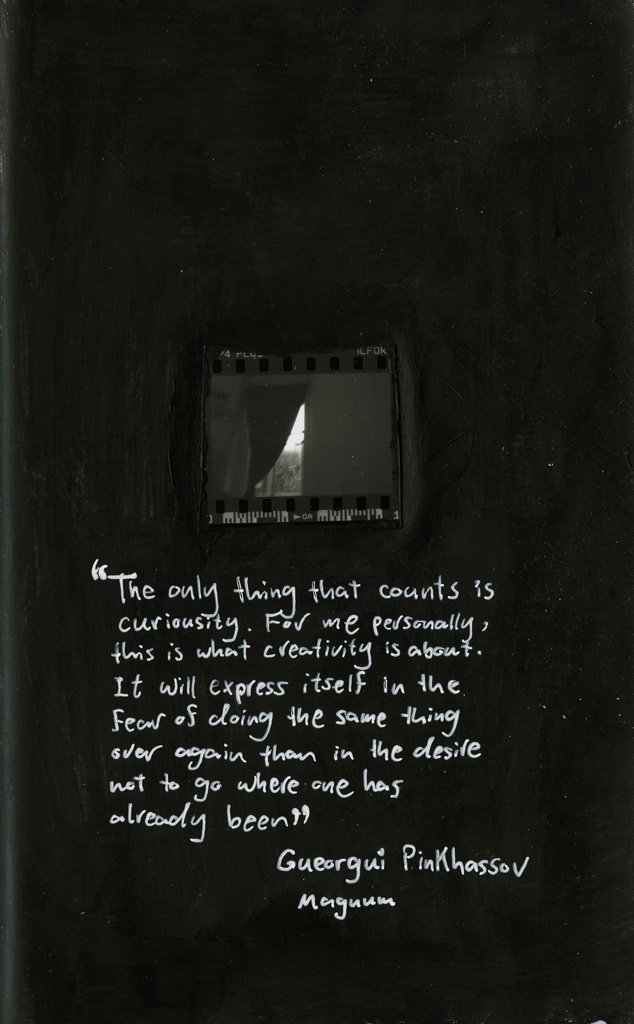 4 PLUS ILFOR
▶0A 1
“The only thing that counts is
curiousity. For me personally,
this is what creativity is about.
It will express itself in the
fear of doing the same thing
over again than in the desire
not to go where one has
already been”
Gueorgui Pinkhassov
Magnum